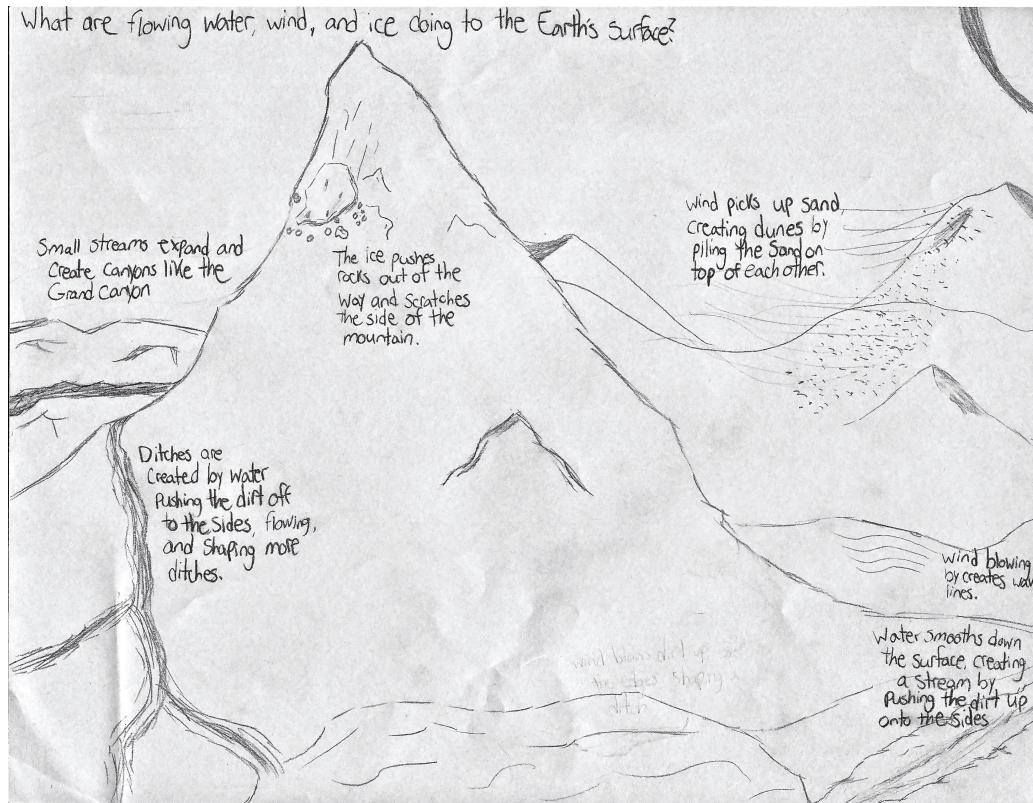 What are flowing water, wind, and ice doing to the Earth's surface?
Small streams expand and
Create Canyons like the
Grand Canyon
The ice pushes
rocks out of the
way and scratches
the side of the
mountain.
wind picks up sand
creating dunes by
piling the sand on
top of each other.
Ditches are
created by water
pushing the dirt off
to the sides, flowing,
and shaping more
ditches.
wind blowing
by creates
lines.
Water smooths down
the surface, creating
a stream by
pushing the dirt up
onto the sides